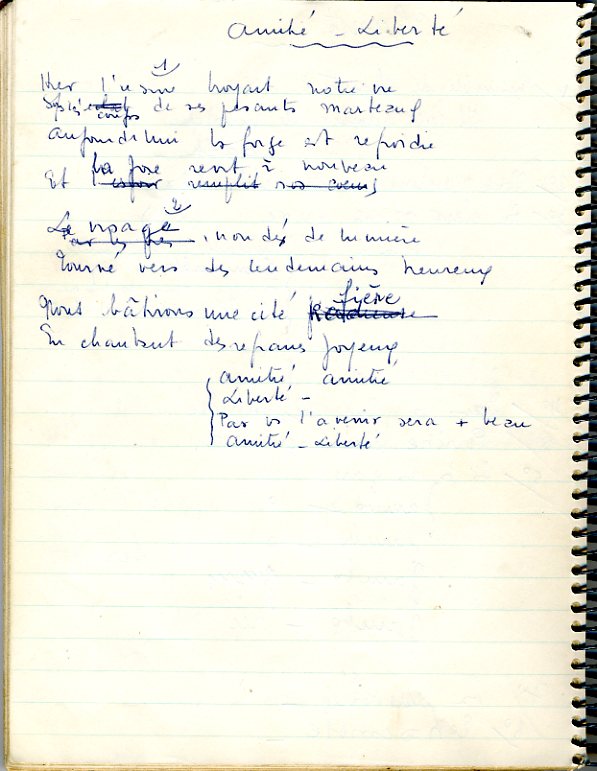 Amitié - Liberté
1
Hier l'usine broyait notre vie
coups de ses pesants marteaux
Aujourd'hui la forge est refroidie
Et la joie revit à nouveau
espoir remplit nos coeurs
2
Le visage inondé de lumière
Tourné vers des lendemains heureux
Nous bâtirons une cité fière
En chantant des refrains joyeux
Amitié, amitié
Liberté -
Par vs l'avenir sera + beau
Amitié - Liberté